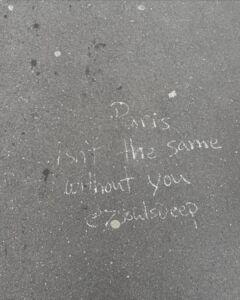 Paris
isn't the same
without you